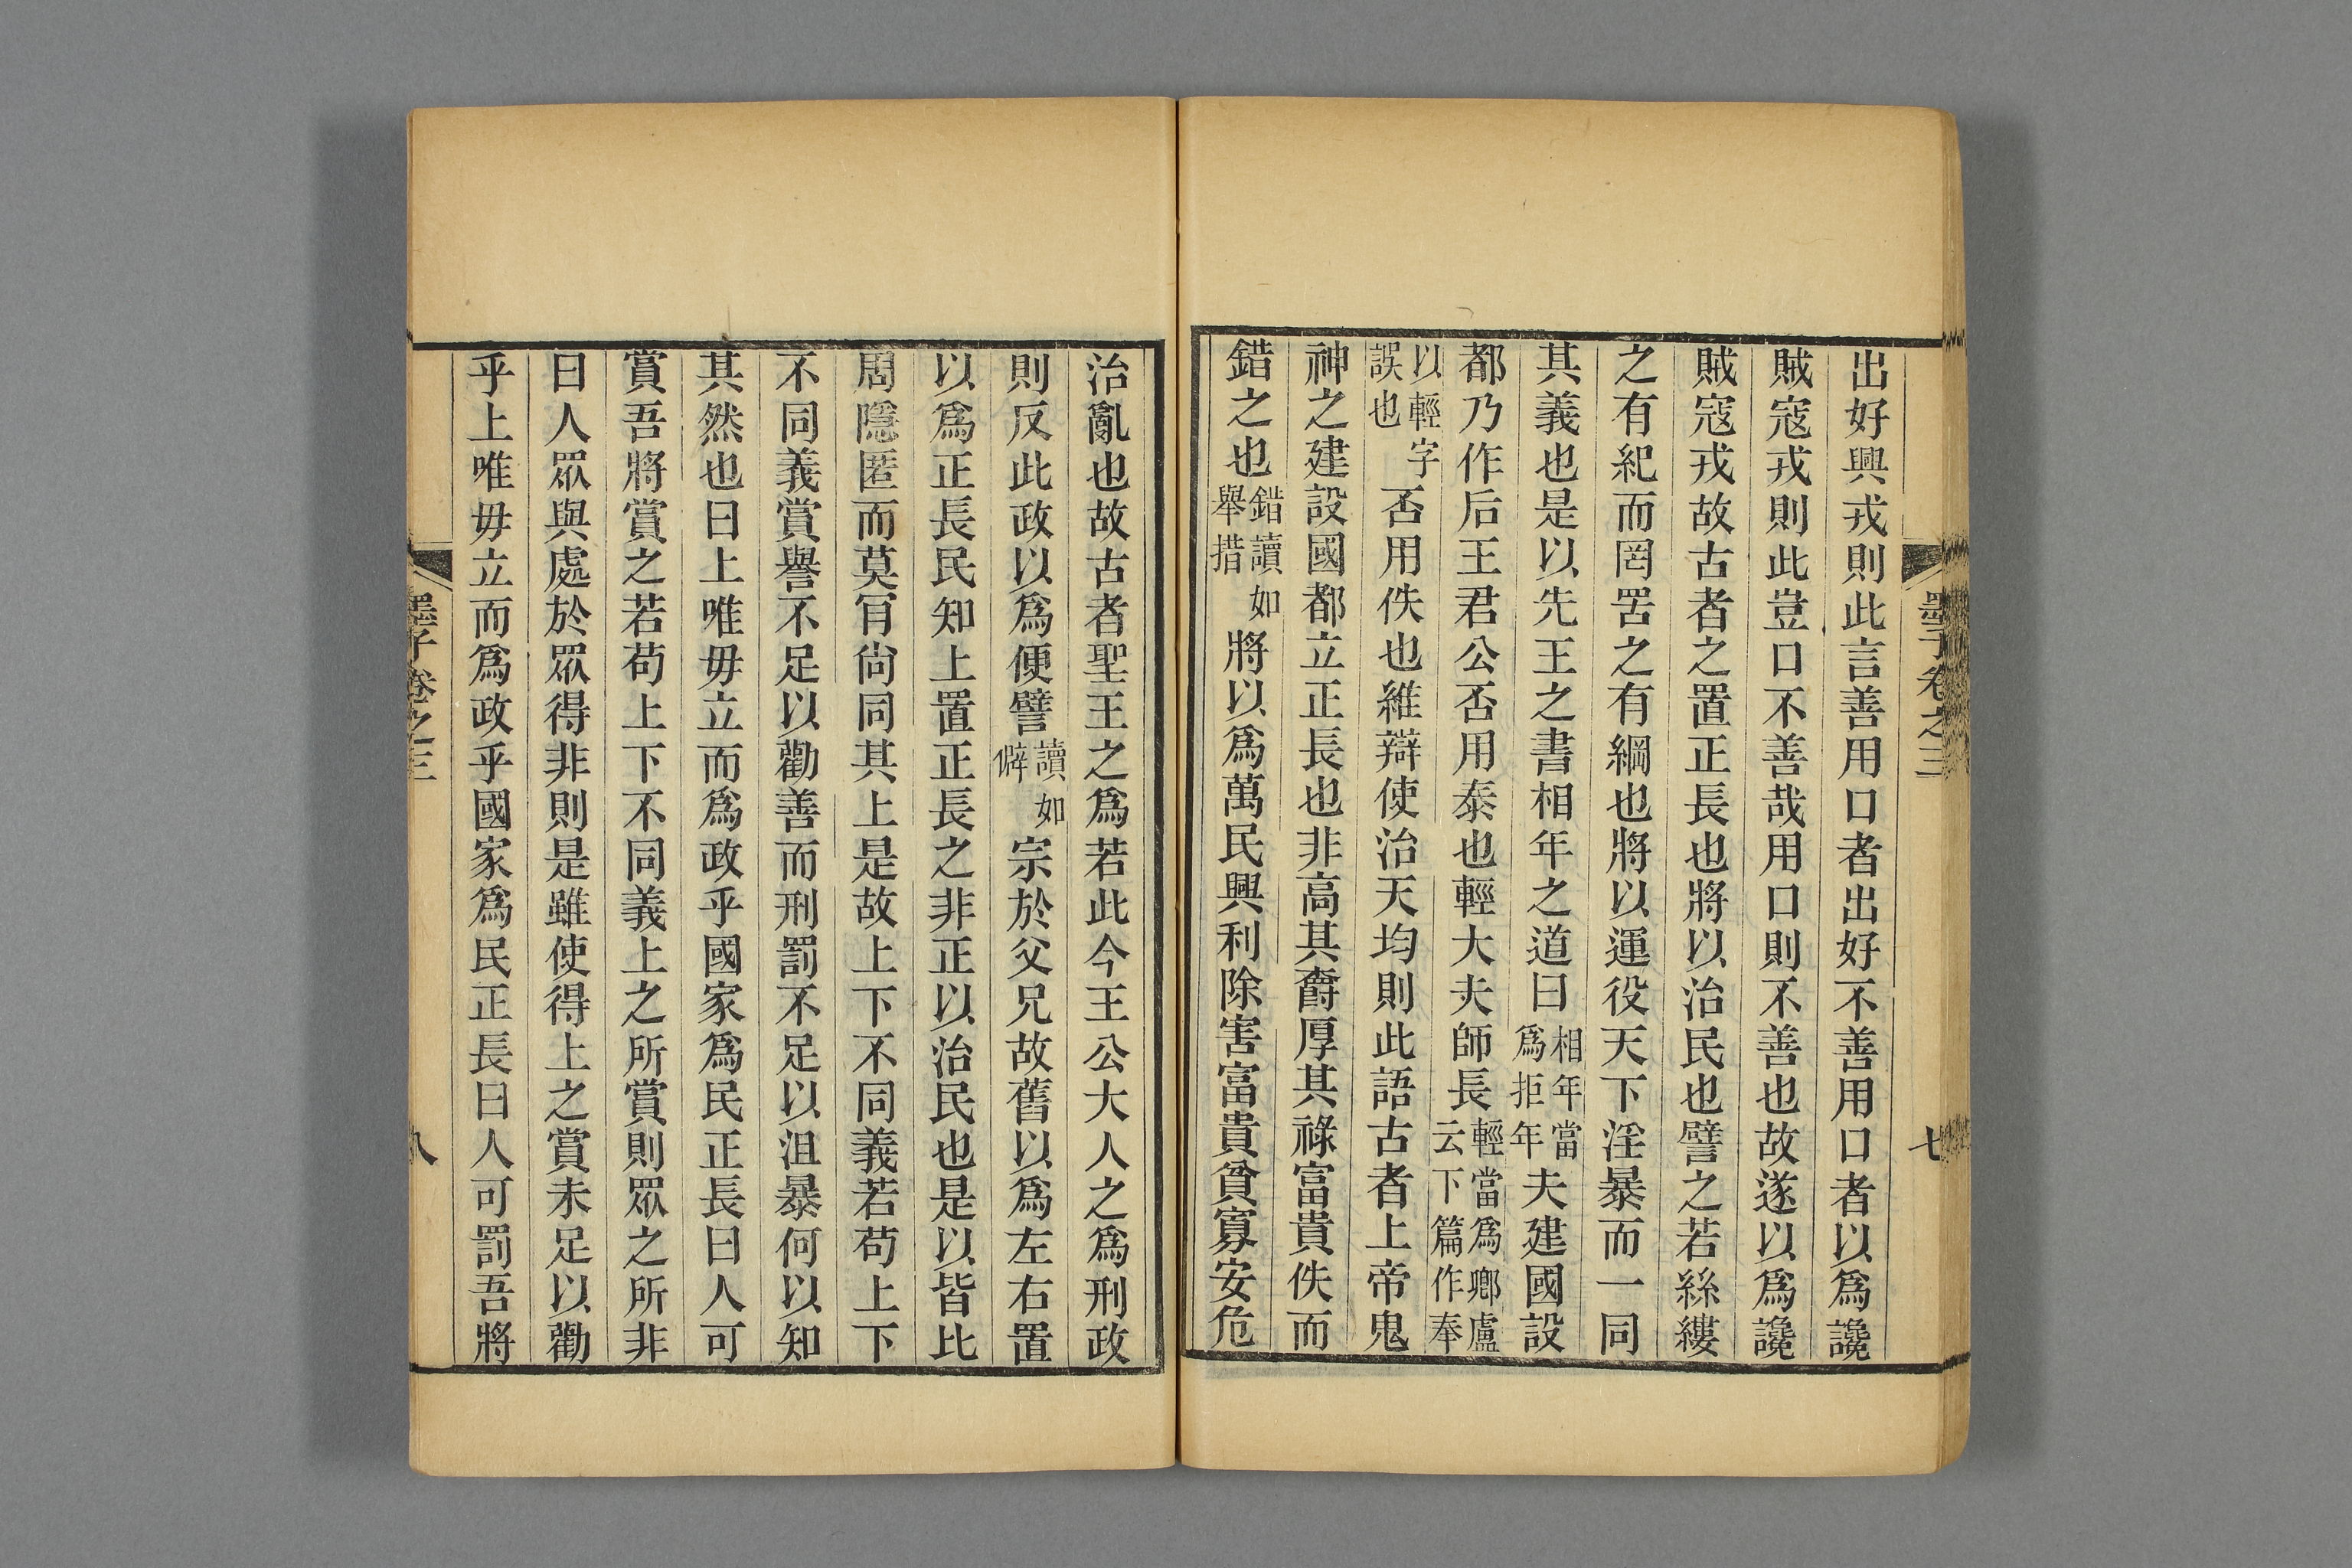 墨子卷之三
七
出好興戎則此言善用口者出好不善用口者以爲讒
賊寇戎則此豈口不善哉用口則不善也故遂以爲讒
賊寇戎故古者之置正長也將以治民也譬之若絲縷
之有紀而罔罟之有綱也將以運役天下淫暴而一同
其義也是以先王之書相年之道曰相年當爲拒年夫建國設
都乃作后王君公否用泰也輕大夫師長輕當爲鄉盧云下篇作奉
以輕字誤也否用佚也維辯使治天均則此語古者上帝鬼
神之建設國都立正長也非高其爵厚其祿富貴佚而
錯之也錯讀如舉措將以爲萬民興利除害富貴貧寡安危
治亂也故古者聖王之爲若此今王公大人之爲刑政
則反此政以爲便譬讀如僻宗於父兄故舊以爲左右置
以爲正長民知上置正長之非正以治民也是以皆比
周隱匿而莫肎尙同其上是故上下不同義若苟上下
不同義賞譽不足以勸善而刑罰不足以沮暴何以知
其然也曰上唯毋立而爲政乎國家爲民正長曰人可
賞吾將賞之若苟上下不同義上之所賞則眾之所非
曰人眾與處於眾得非則是雖使得上之賞未足以勸
乎上唯毋立而爲政乎國家爲民正長曰人可罰吾將
墨子卷之三
八